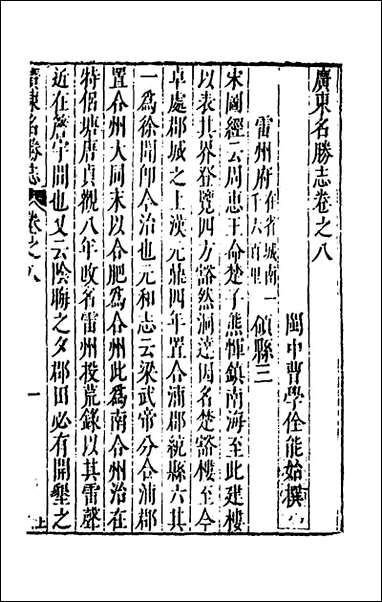 廣東名勝志卷之八
閩中曹學佺能始撰
雷州府在省城南一千六百里 領縣三
宋圖經云周惠王命楚子熊惲鎮南海至此建樓
以表其界登覽四方谿然洞達因名楚谿樓至今
卓處郡城之上漢元鼎四年置合浦郡統縣六其
一為徐聞卽今治也元和志云梁武帝分合浦郡
置合州大同末以合肥為合州此為南合州治在
特侶塘唐貞觀八年改名雷州投荒錄以其雷聲
近在簷宇間也又云陰晦之夕郡田必有開墾之
廣東名勝志 卷之八 一 上